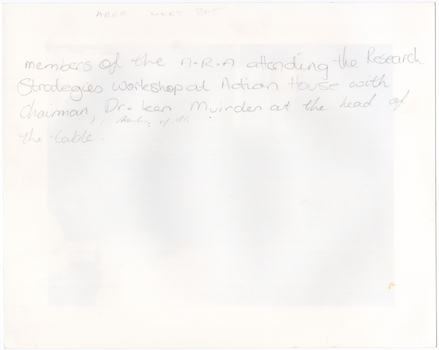 members of the A.R.A attending the Research
Strategies Workshop at Adrian House with
Chairman, Dr. Ken Muirden at the head of
the table.